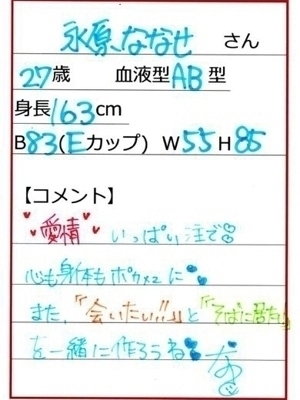 永原ななせ さん
27歳 血液型AB型
身長163cm
B83(Eカップ) W55 H85
【コメント】
愛情 いっぱい注ぐ
心も身体もポカポカに
また、「会いたい!!」と「そばに居たい」
を一緒に作ろうね